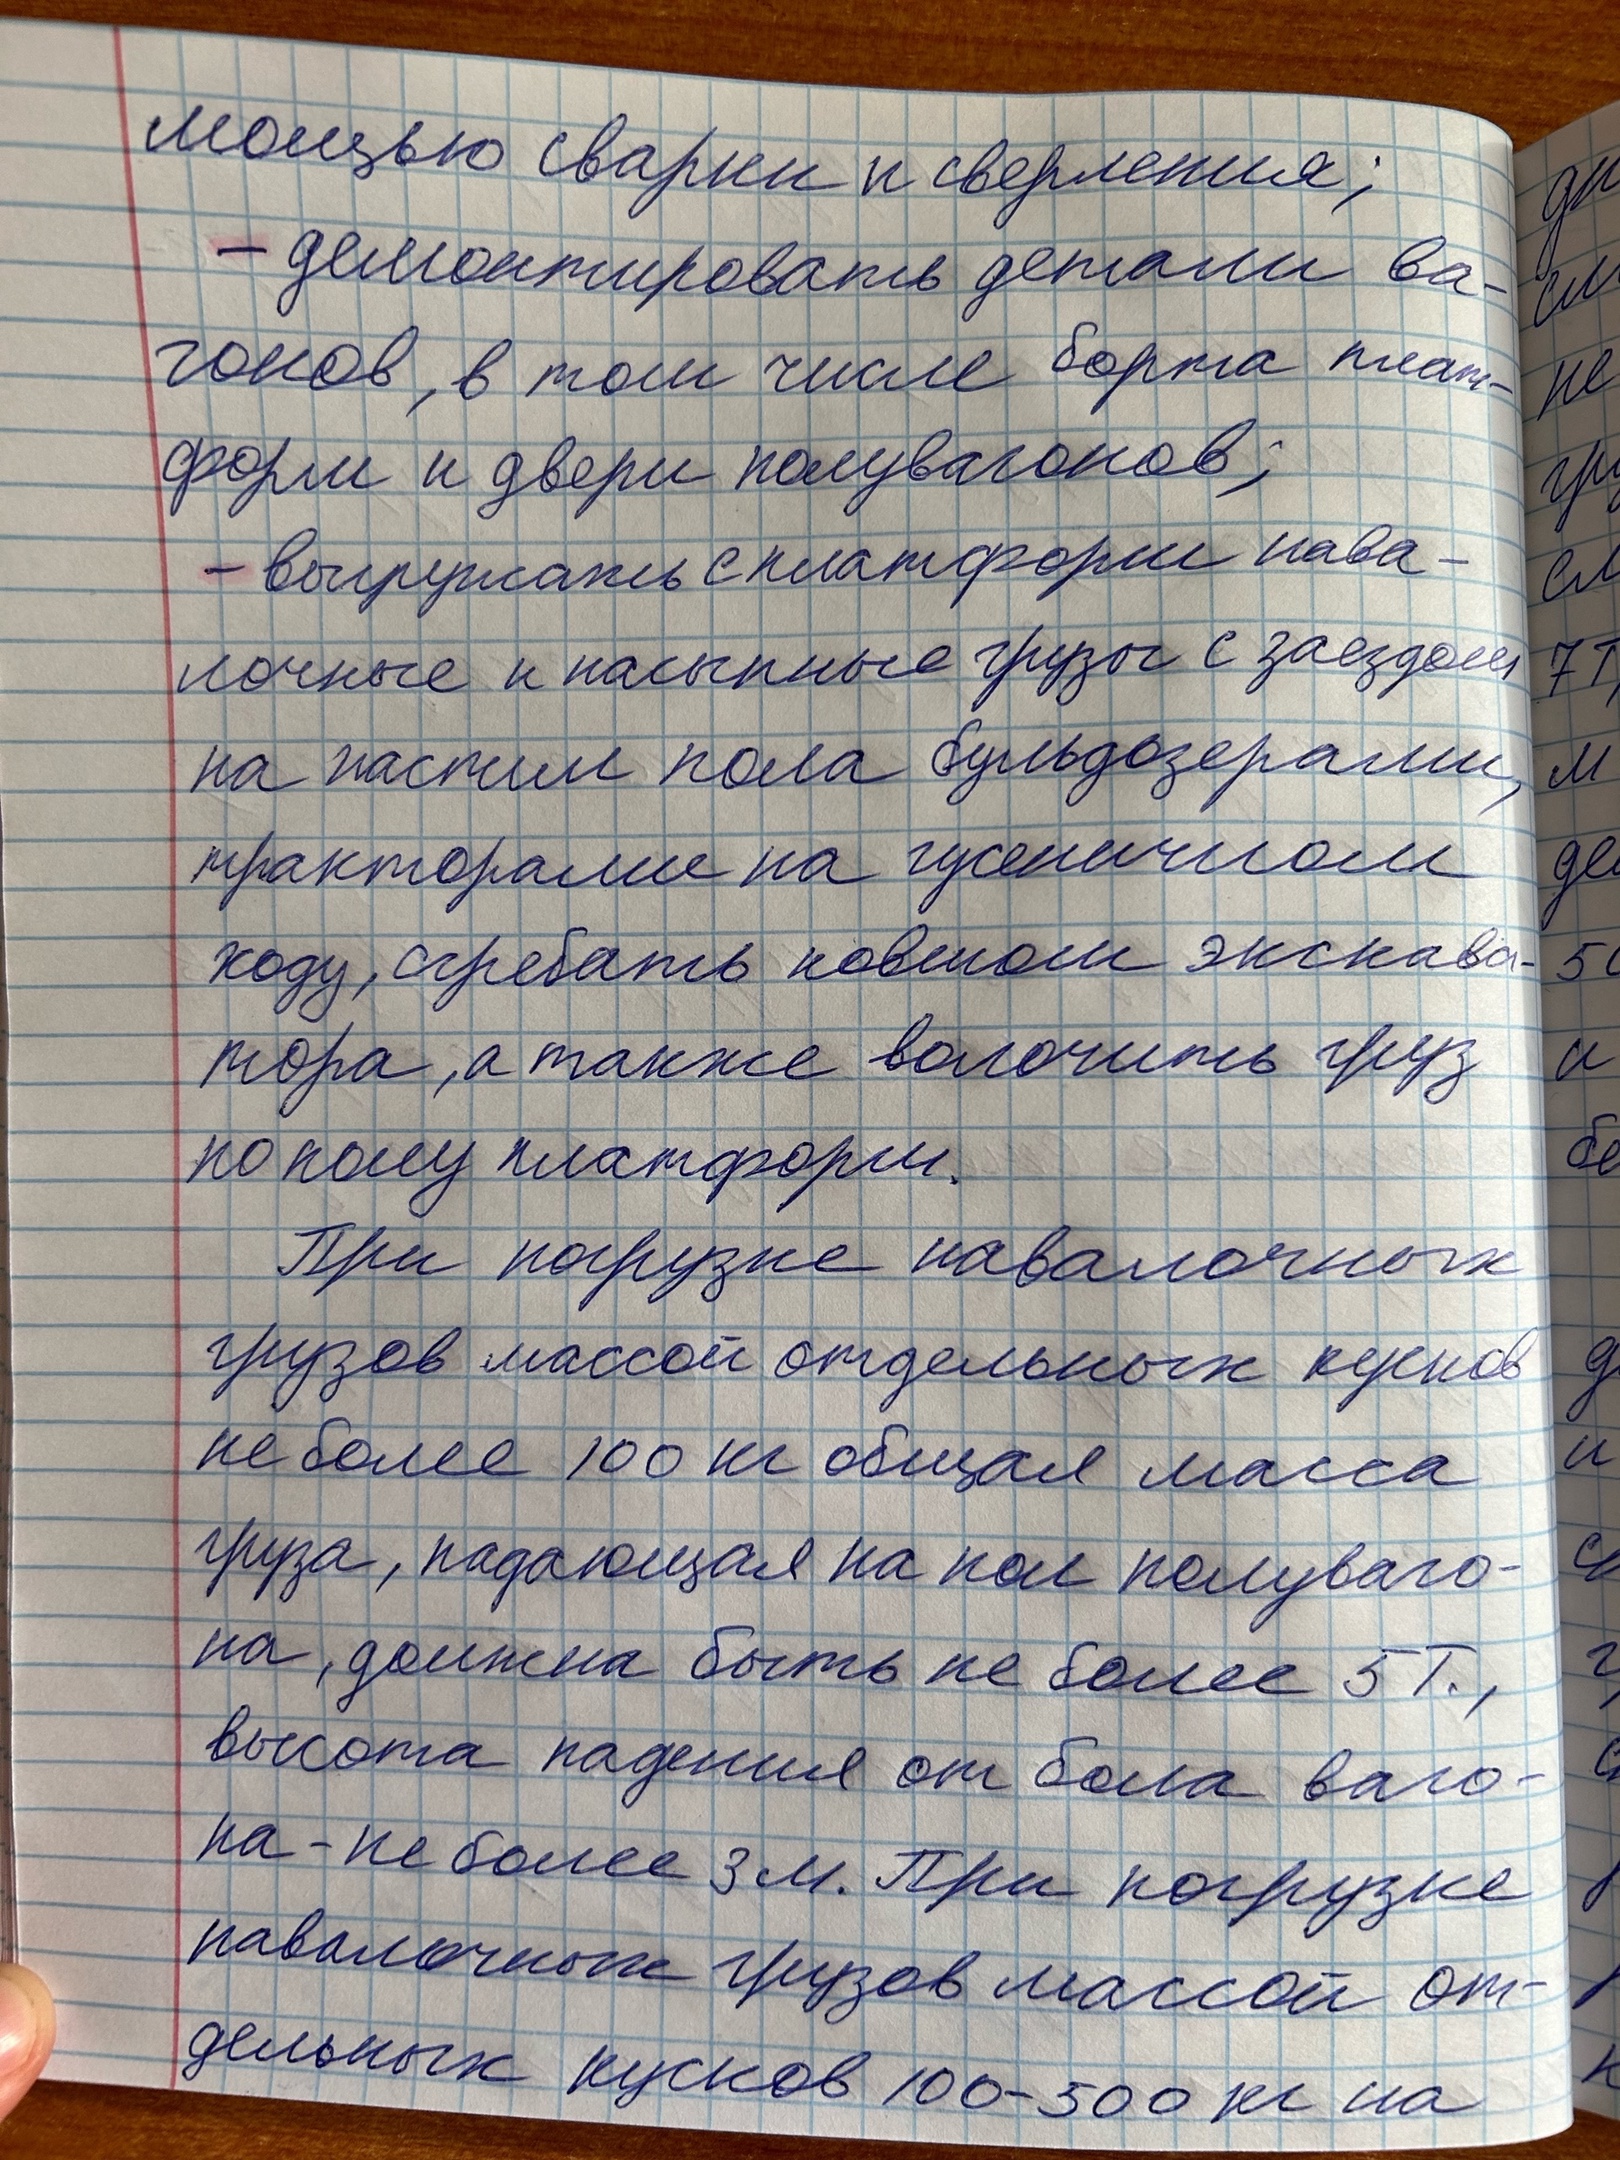 мощью сварки и сверления;
- демонтировать детали ва-
гонов, в том числе борта плат-
форм и двери полувагонов;
- выгружать с платформ нава-
лочные и насыпные грузы с заездом
на настил пола бульдозерами,
тракторами на гусеничном
ходу, сгребать ковшом экскава-
тора, а также волочить груз
по полу платформ.
При погрузке навалочных
грузов массой отдельных кусков
не более 100 кг общая масса
груза, падающая на пол полуваго-
на, должна быть не более 5 Т.,
высота падения от бола ваго-
на - не более 3 м. При погрузке
навалочных грузов массой от-
дельных кусков 100-500 кг на